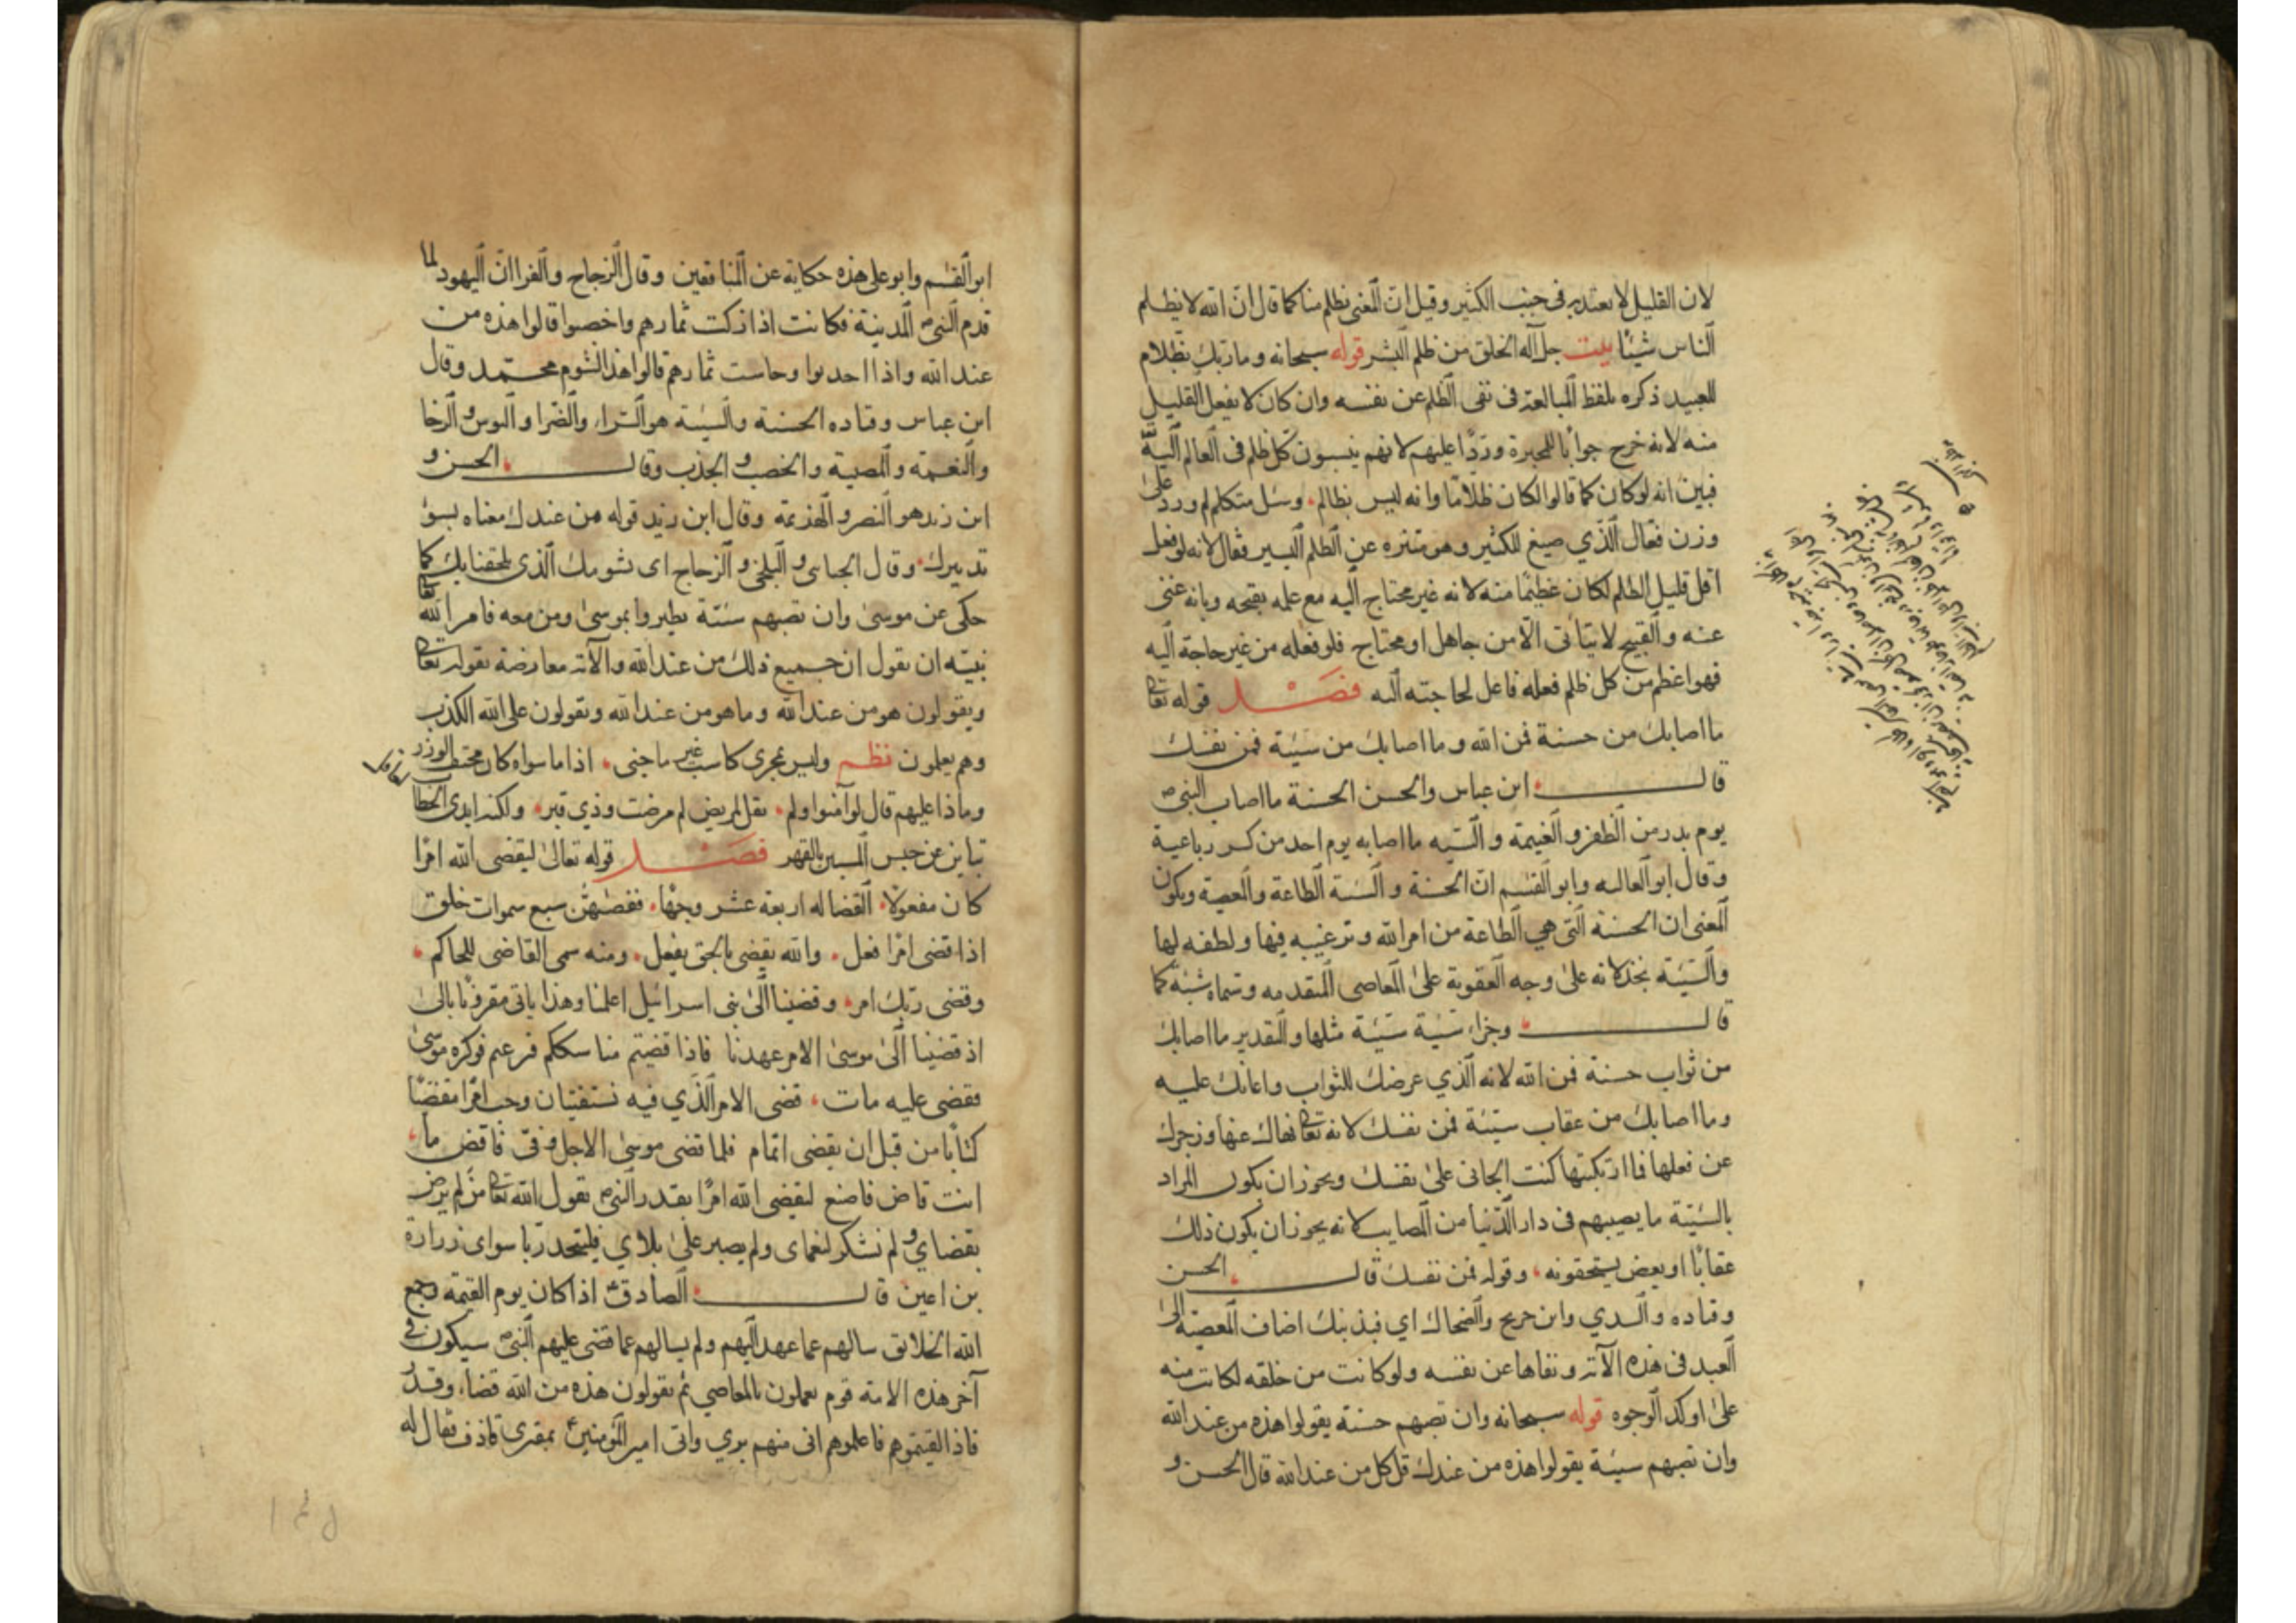 لان القليل لا يعتد به فى جنب الكثير وقيل انّ المعنى نظلم منا كما قال انّ الله لا يظلم
الناس شيئًا بيت جل آله الخلق من ظلم البشر قوله سبحانه وما ربك بظلام
للعبيد ذكره بلفظ المبالغة فى نفى الظلم عن نفسه وان كان لا يفعل القليل
منه لانه خرج جوابًا للمجبرة وردًا عليهم لانهم ينسبون كل ظلم فى العالم اليه
فبين انه لو كان كما قالوا لكان ظلامًا وانه ليس بظالم وسئل متكلم لم ورد على
وزن فعّال الذي صيغ للكثير وهو متنزه عن الظلم اليسير فقال لانه لو فعل
اقل قليل الظلم لكان عظيمًا منه لانه غير محتاج اليه مع علمه بقبحه وبانه غنى
عنه والقبيح لا يتأتى الّا من جاهل او محتاج فلو فعله من غير حاجة اليه
فهو اعظم من كل ظلم فعله فاعل لحاجته اليه فصل قوله تعالى
ما اصابك من حسنة فمن الله وما اصابك من سيئة فمن نفسك
قال ابن عباس والحسن الحسنة ما اصاب النبى
يوم بدر من الظفر والغنيمة والسيئة ما اصابه يوم احد من كسر رباعية
وقال ابو العاليه وابو القسم ان الحسنة والسيئة الطاعة والمعصية ويكون
المعنى ان الحسنة التى هي الطاعة من امر الله وترغيبه فيها ولطفه لها
والسيئة بخذلانه على وجه العقوبة على المعاصى المتقدمه وسماه سيئة كما
قال وجزاء سيئة سيئة مثلها والتقدير ما اصابك
من ثواب حسنة فمن الله لانه الذي عرضك للثواب واعانك عليه
وما اصابك من عقاب سيئة فمن نفسك لانه تعالى نهاك عنها وزجرك
عن فعلها فلما ارتكبتها كنت الجانى على نفسك ويجوز ان يكون المراد
بالسيئة ما يصيبهم فى دار الدنيا من المصايب لانه يجوز ان يكون ذلك
عقابًا او بعض يستحقونه وقوله فمن نفسك قال الحسن
وقتاده والسدي وابن جريج والضحاك اي فبذنبك اضاف المعصية الى
العبد فى هذه الآية ونفاها عن نفسه ولو كانت من خلقه لكانت منه
على اوكد الوجوه قوله سبحانه وان تصبهم حسنة يقولوا هذه من عند الله
وان تصبهم سيئة يقولوا هذه من عندك قل كل من عند الله قال الحسن و
ابو القسم وابو على هذه حكاية عن المنافقين وقال الزجاج والفرا ان اليهود لما
قدم النبى المدينة فكانت اذا زكت ثمارهم واخصبوا قالوا هذه من
عند الله واذا اجدبوا وخاست ثمارهم قالوا هذا لشوم محمد وقال
ابن عباس وقتاده الحسنة والسيئة هو السراء والضرا والبوس والرخا
والنعمة والمصيبة والخصب والجدب وقال الحسن و
ابن زيد هو النصر والهزيمة وقال ابن زيد قوله من عندك معناه بسوء
تدبيرك وقال الجبائى والبلخى والزجاج اى بشومك الذى لحقنا بك كما
حكى عن موسى وان تصبهم سيئة يطيروا بموسى ومن معه فامر الله تعالى
نبيّه ان يقول ان جميع ذلك من عند الله والآية معارضة بقوله تعالى
ويقولون هو من عند الله وما هو من عند الله ويقولون على الله الكذب
وهم يعلمون نظم وليس بمجرى كاسب غير ما جنى اذا ما سواه كان محتقب الوزر
وماذا عليهم قال لو آمنوا ولم يقل لمريض لم مرضت وذي قبر ولكنه ابدى الخطا
تباين عن حبس المسيء بالقهر فصل قوله تعالى ليقضى الله امرًا
كان مفعولا القضا له اربعة عشر وجهًا فقضيهن سبع سموات خلق
اذا قضى امرًا فعل والله يقضى بالحق يفعل ومنه سمى القاضى للحاكم
وقضى ربك امر وقضينا الى بنى اسرائيل اعلمنا وهذا ياتى مقرونًا بالى
اذ قضينا الى موسى الامر عهدنا فاذا قضيتم مناسككم فرغتم فوكزه موسى
فقضى عليه مات قضى الامر الذي فيه تستفتيان وجب امرًا مقضيًا
كتابًا من قبل ان يقضى اتمام فلما قضى موسى الاجل وفى فاقض ما
انت قاض فاصنع ليقضى الله امرًا بقدر النبى يقول الله تعالى من لم يرض
بقضاي ولم يشكر لنعماى ولم يصبر على بلاي فليتخذ ربا سواى زرارة
بن اعين قال الصادق اذا كان يوم القيمة وجمع
الله الخلايق سالهم عما عهد اليهم ولم يسالهم عما قضى عليهم النبى سيكون فى
آخر هذه الامة قوم يعملون بالمعاصي ثم يقولون هذه من الله قضاء وقدر
فاذا لقيتموهم فاعلموهم انى منهم بري واتى امير المؤمنين بمقرى قاذف فقال له